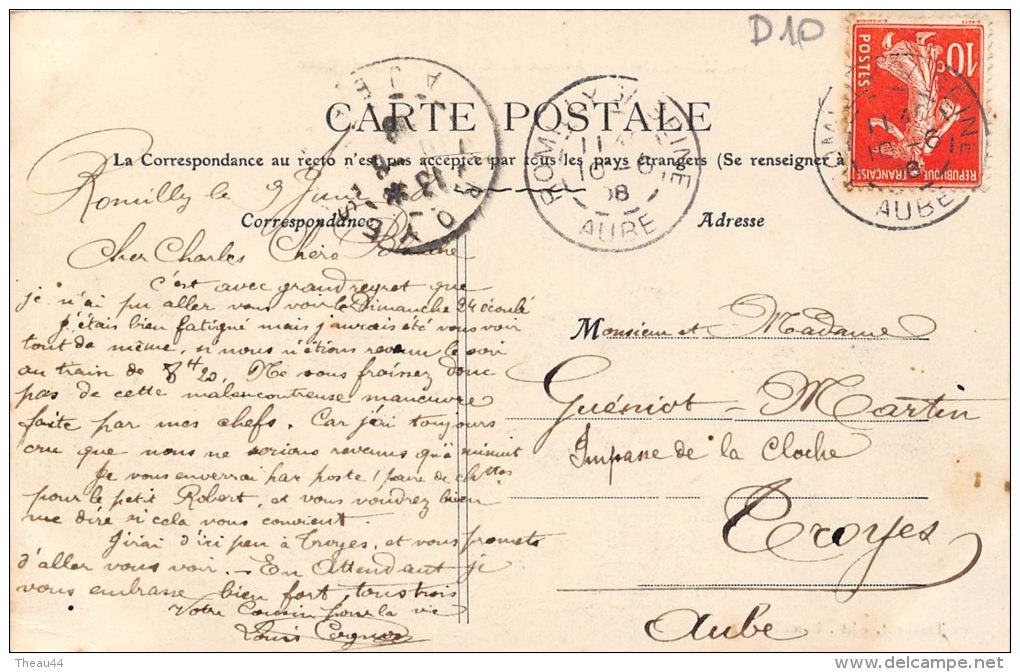 D10
CARTE POSTALE
La Correspondance au recto n'est pas acceptée par tous les pays étrangers (Se renseigner à
Correspondance
Adresse
Romilly le 9 Juin
Cher Charles Chère
C'est avec grand regret que
je n'ai pu aller vous voir le Dimanche 24 écoulé
J'étais bien fatigué mais j'aurais été vous voir
tout de même, si nous n'étions revenu le soir
au train de 8h20. Ne vous froissez donc
pas de cette malencontreuse manœuvre
faite par mes chefs. Car j'ai toujours
cru que nous ne serions revenus qu'à minuit
Je vous enverrai par poste 1 paire de ch ttes
pour le petit Robert, et vous voudrez bien
me dire si cela vous convient.
J'irai d'ici peu à Troyes, et vous promets
d'aller vous voir. - En Attendant je
vous embrasse bien fort tous trois
Votre Cousin pour la vie
Louis
Monsieur et Madame
Guéniot - Martin
Impasse de la Cloche
Troyes
Aube
ROMILLY S. SEINE
11
10 - 6
08
AUBE
TROYES
AUBE
10 c
POSTES
REPUBLIQUE FRANÇAISE
SEINE
11
10 - 6
08
AUBE
Theau44
delcampe.net